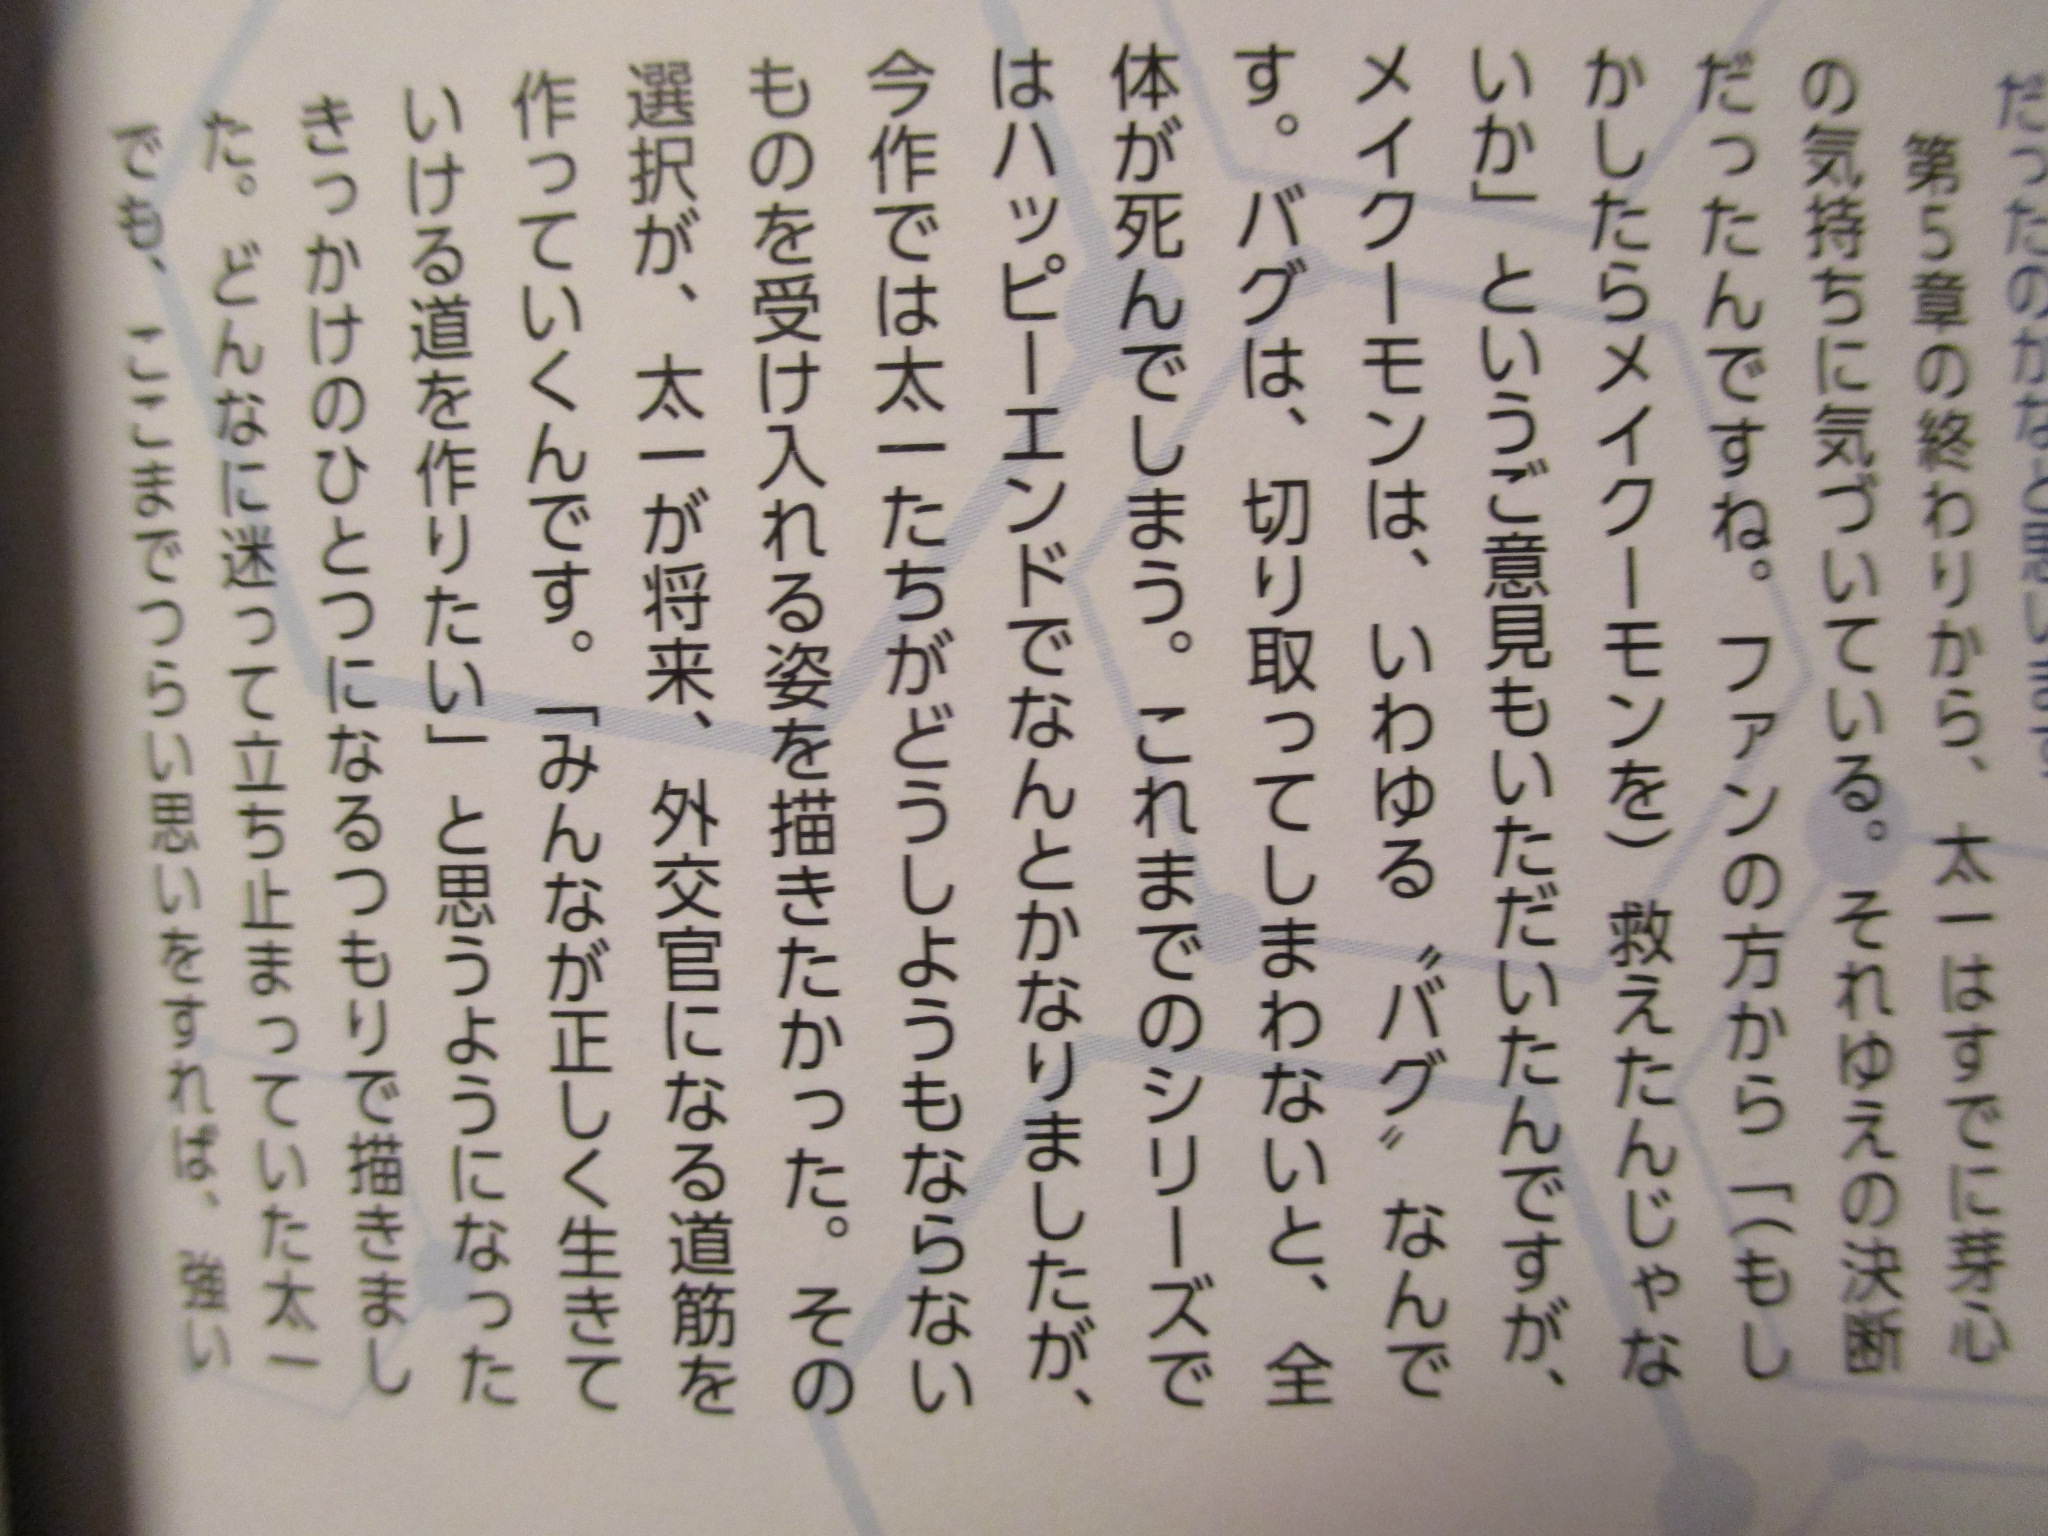 だったのかなと思います
第5章の終わりから、太一はすでに芽心
の気持ちに気づいている。それゆえの決断
だったんですね。ファンの方から「(もし
かしたらメイクーモンを)救えたんじゃな
いか」というご意見もいただいたんですが、
メイクーモンは、いわゆる〝バグ〟なんで
す。バグは、切り取ってしまわないと、全
体が死んでしまう。これまでのシリーズで
はハッピーエンドでなんとかなりましたが、
今作では太一たちがどうしようもならない
ものを受け入れる姿を描きたかった。その
選択が、太一が将来、外交官になる道筋を
作っていくんです。「みんなが正しく生きて
いける道を作りたい」と思うようになった
きっかけのひとつになるつもりで描きまし
た。どんなに迷って立ち止まっていた太一
でも、ここまでつらい思いをすれば、強い